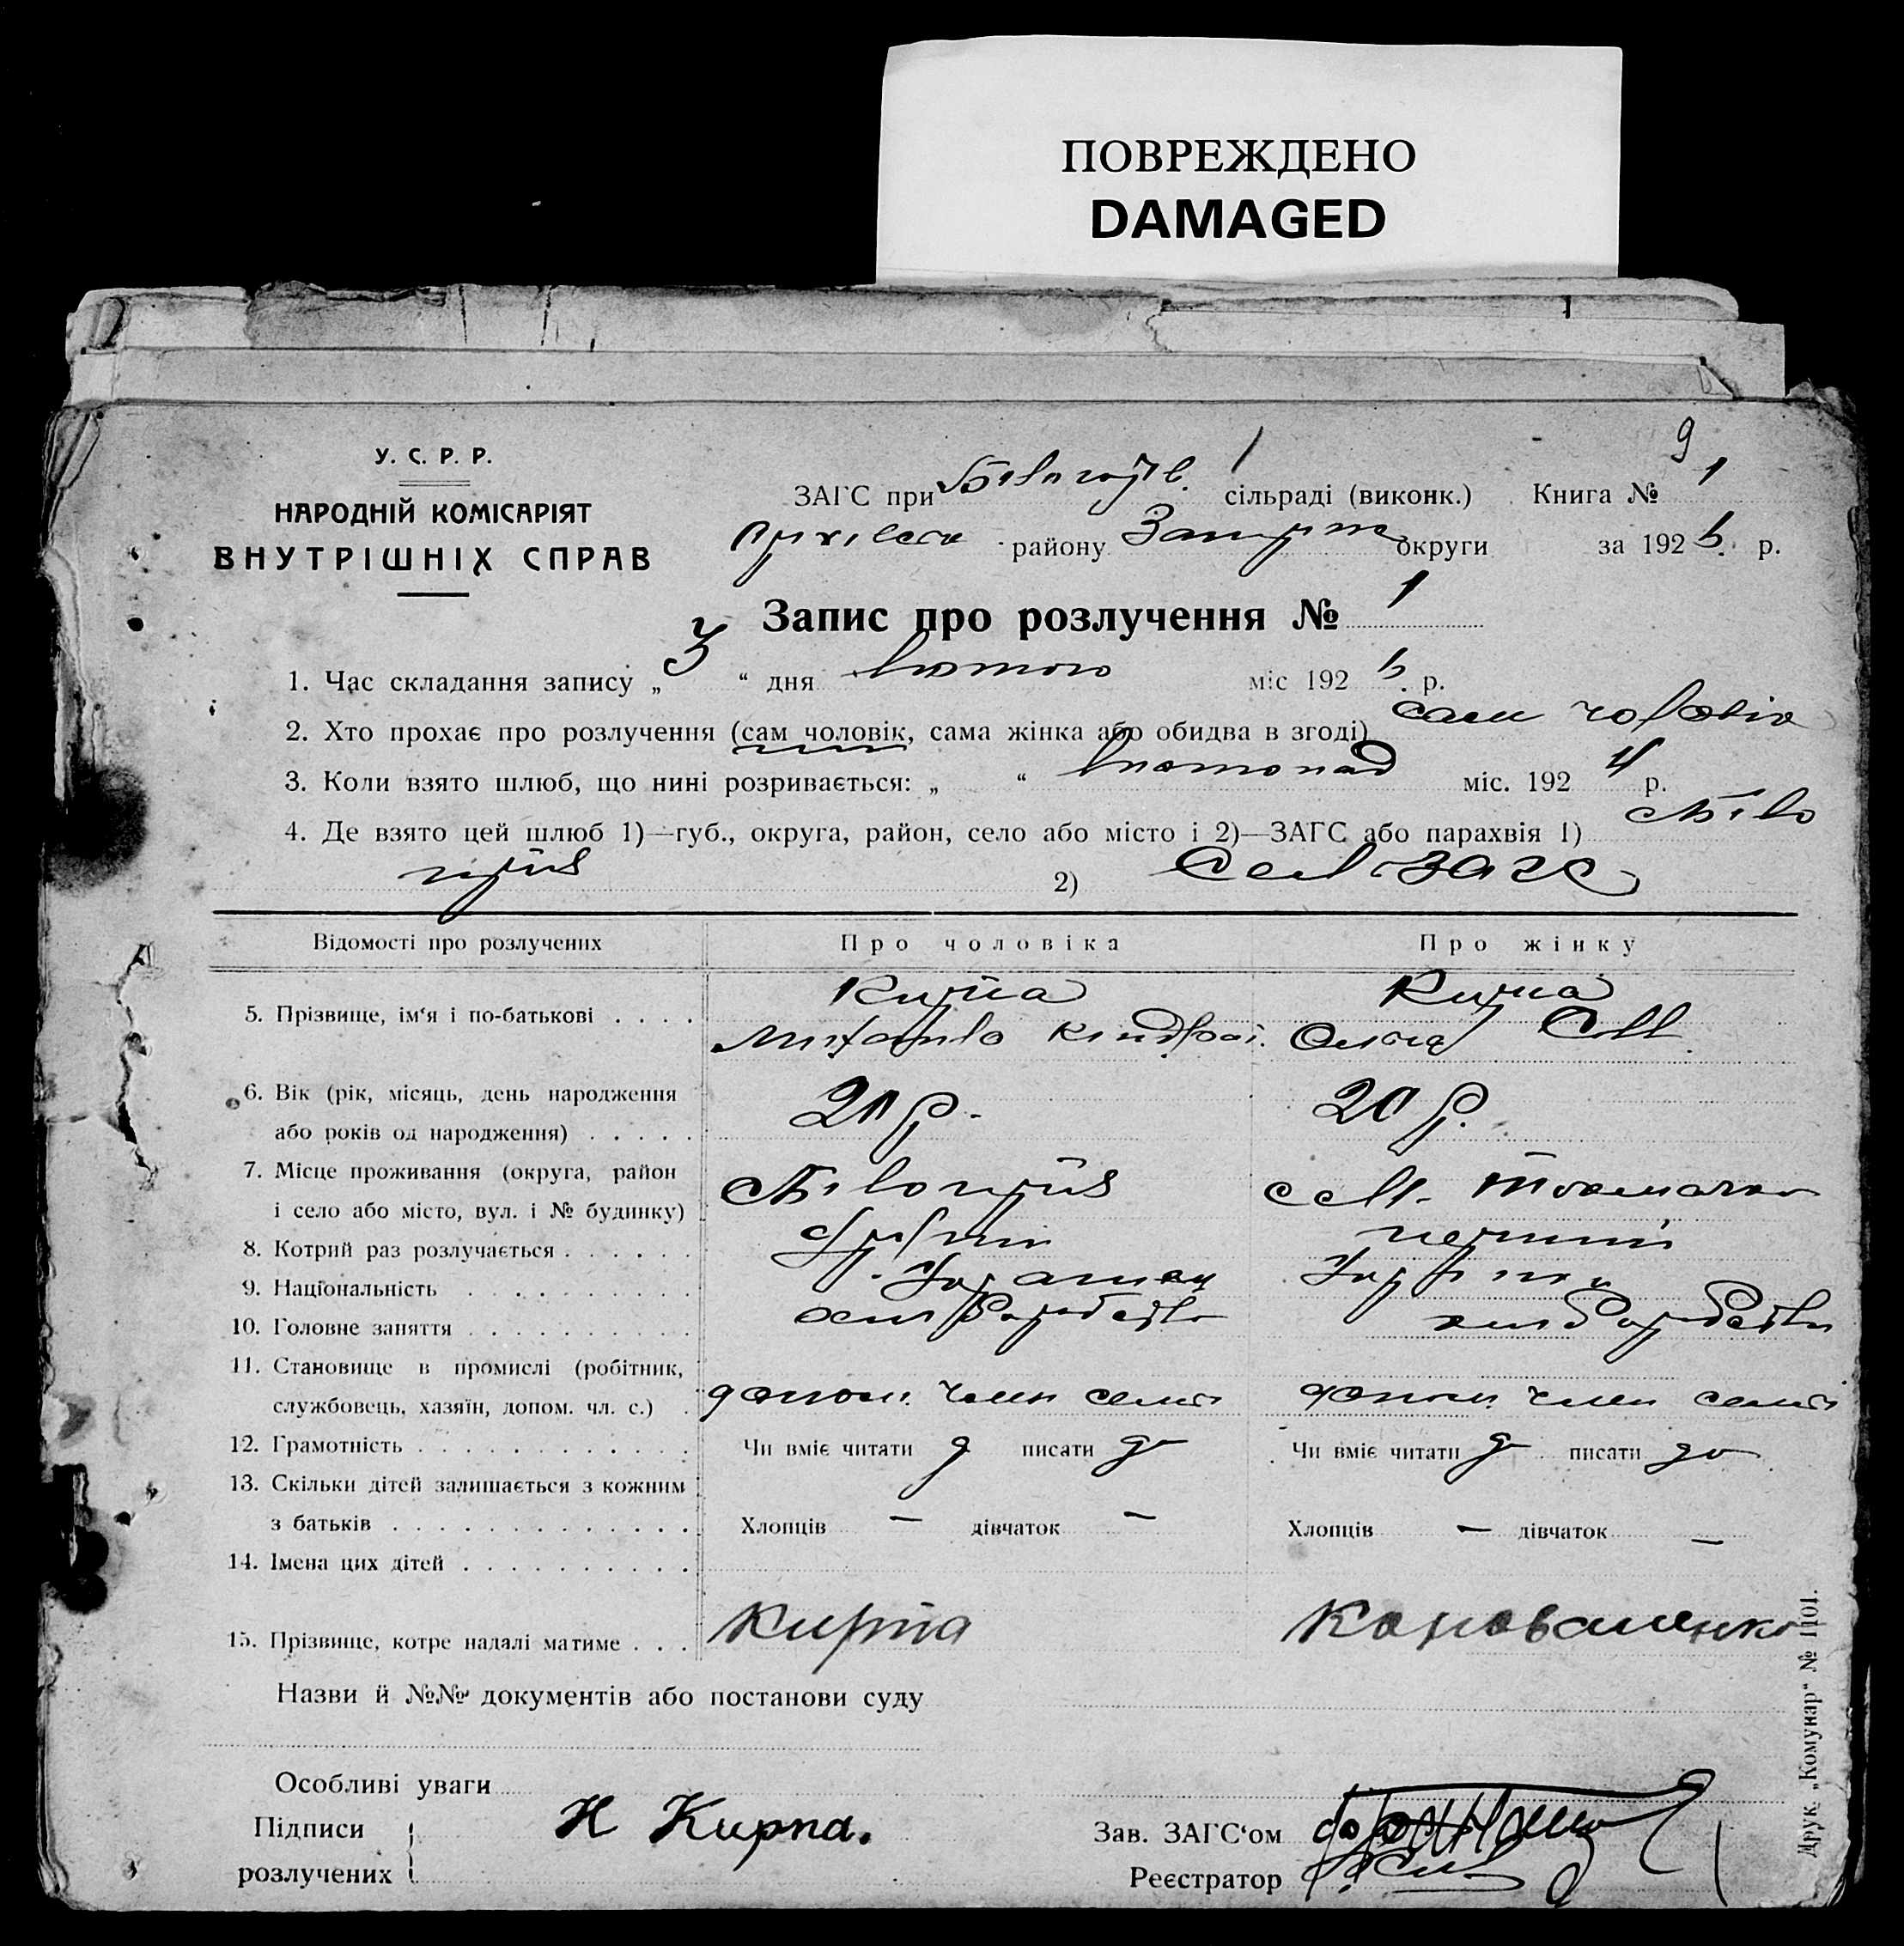 ПОВРЕЖДЕНО
DAMAGED
9
У. С. Р. Р.
НАРОДНІЙ КОМІСАРІЯТ
ВНУТРІШНІХ СПРАВ
ЗАГС при сільраді (виконк.) Книга № 1
району Запоріж округи за 192 р.
Запис про розлучення № 1
1. Час складання запису „ 3 “ дня лютого міс 192 р.
2. Хто прохає про розлучення (сам чоловік, сама жінка або обидва в згоді) сам чоловік
3. Коли взято шлюб, що нині розривається: „ “ листопад міс. 192 4 р.
4. Де взято цей шлюб 1)—губ., округа, район, село або місто і 2)—ЗАГС або парахвія 1)
2) Сел. загс
Відомості про розлучених Про чоловіка Про жінку
5. Прізвище, ім‘я і по-батькові . . . . Кирпа Кирпа
6. Вік (рік, місяць, день народження
або років од народження) . . . . . 21 р. 20 р.
7. Місце проживання (округа, район
і село або місто, вул. і № будинку)
8. Котрий раз розлучається . . . . . . перший
9. Національність . . . . . . . . . .
10. Головне заняття . . . . . . . . . . хліборобство хліборобство
11. Становище в промислі (робітник,
службовець, хазяїн, допом. чл. с.) . допом. член семії допом. член семії
12. Грамотність . . . . . . . . . . . . Чи вміє читати д писати да Чи вміє читати да писати да
13. Скільки дітей залишається з кожним
з батьків . . . . . . . . . . . . . Хлопців — дівчаток — Хлопців — дівчаток —
14. Імена цих дітей . . . . . . . . . .
15. Прізвище, котре надалі матиме . . . Кирпа Коноваленко
Назви й №№ документів або постанови суду
Особливі уваги
Підписи
розлучених
Н Кирпа.
Зав. ЗАГС‘ом
Реєстратор
Друк. „Комунар“ № 1101.